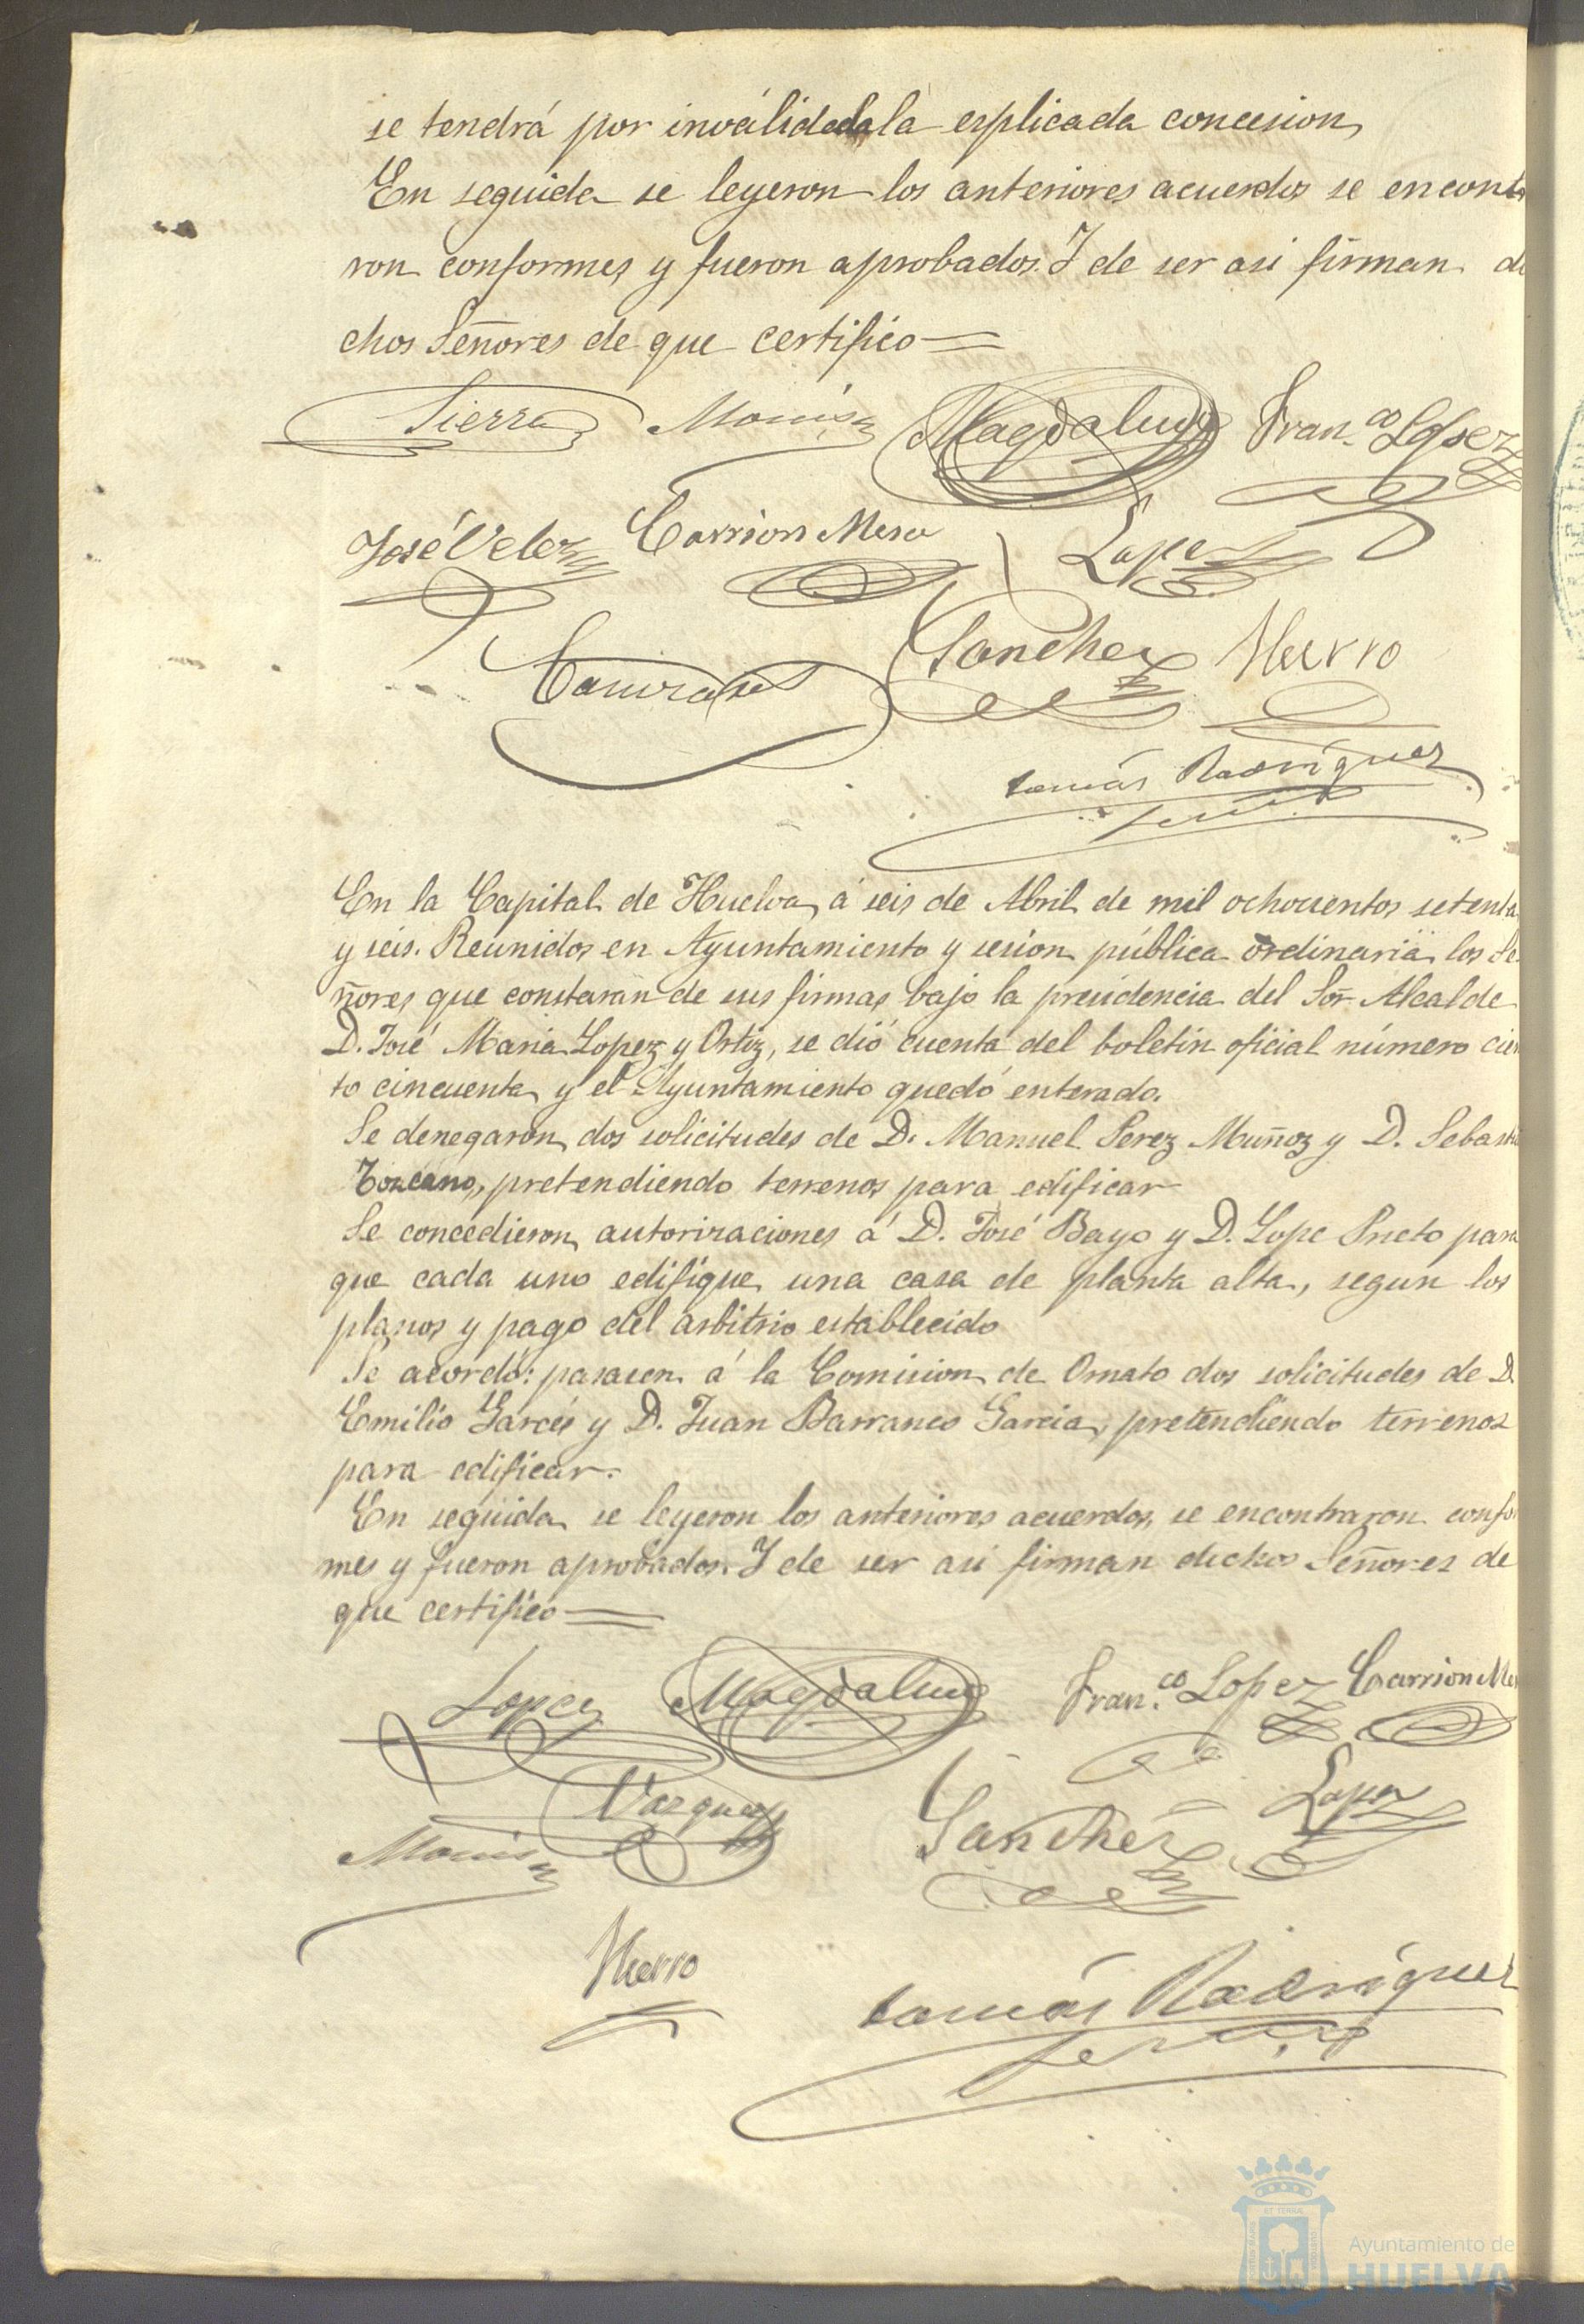 se tendrá por inválidada la esplicada concesion,
En seguida se leyeron los anteriores acuerdos se encontra
ron conformes y fueron aprobados. Y de ser asi firman di
chos Señores de que certifico =
Sierra Monis Magdalena Fran.co Lopez
José Velez Carrion Mesa Lopez
Sanchez Hierro
tomás Rodriguez
En la Capital de Huelva, á seis de Abril de mil ochocientos setenta
y seis. Reunidos en Ayuntamiento y sesion pública ordinaria los Se
ñores que constarán de sus firmas, bajo la presidencia del Sor. Alcalde
D. José Maria Lopez y Ortiz, se dió cuenta del boletin oficial número cien
to cincuenta, y el Ayuntamiento quedó enterado.
Se denegaron, dos solicitudes de D. Manuel Perez Muñoz y D. Sebastian
Toscano, pretendiendo terrenos para edificar
Se concedieron, autorizaciones á D. José Bayo y D. Lope Prieto para
que cada uno edifique, una casa de planta alta, segun los
planos y pago del arbitrio establecido
Se acordó: pasasen á la Comision de Ornato dos solicitudes de D.
Emilio Garcés y D. Juan Barranco Garcia, pretendiendo terrenos
para edificar.
En seguida se leyeron los anteriores acuerdos, se encontraron confor
mes y fueron aprobados. Y de ser asi firman dichos Señores de
que certifico =
Lopez Magdalena Fran.co Lopez Carrion Mesa
Vazquez Lopez
Monis Sanchez
Hierro
tomás Rodriguez
Ayuntamiento de
HUELVA